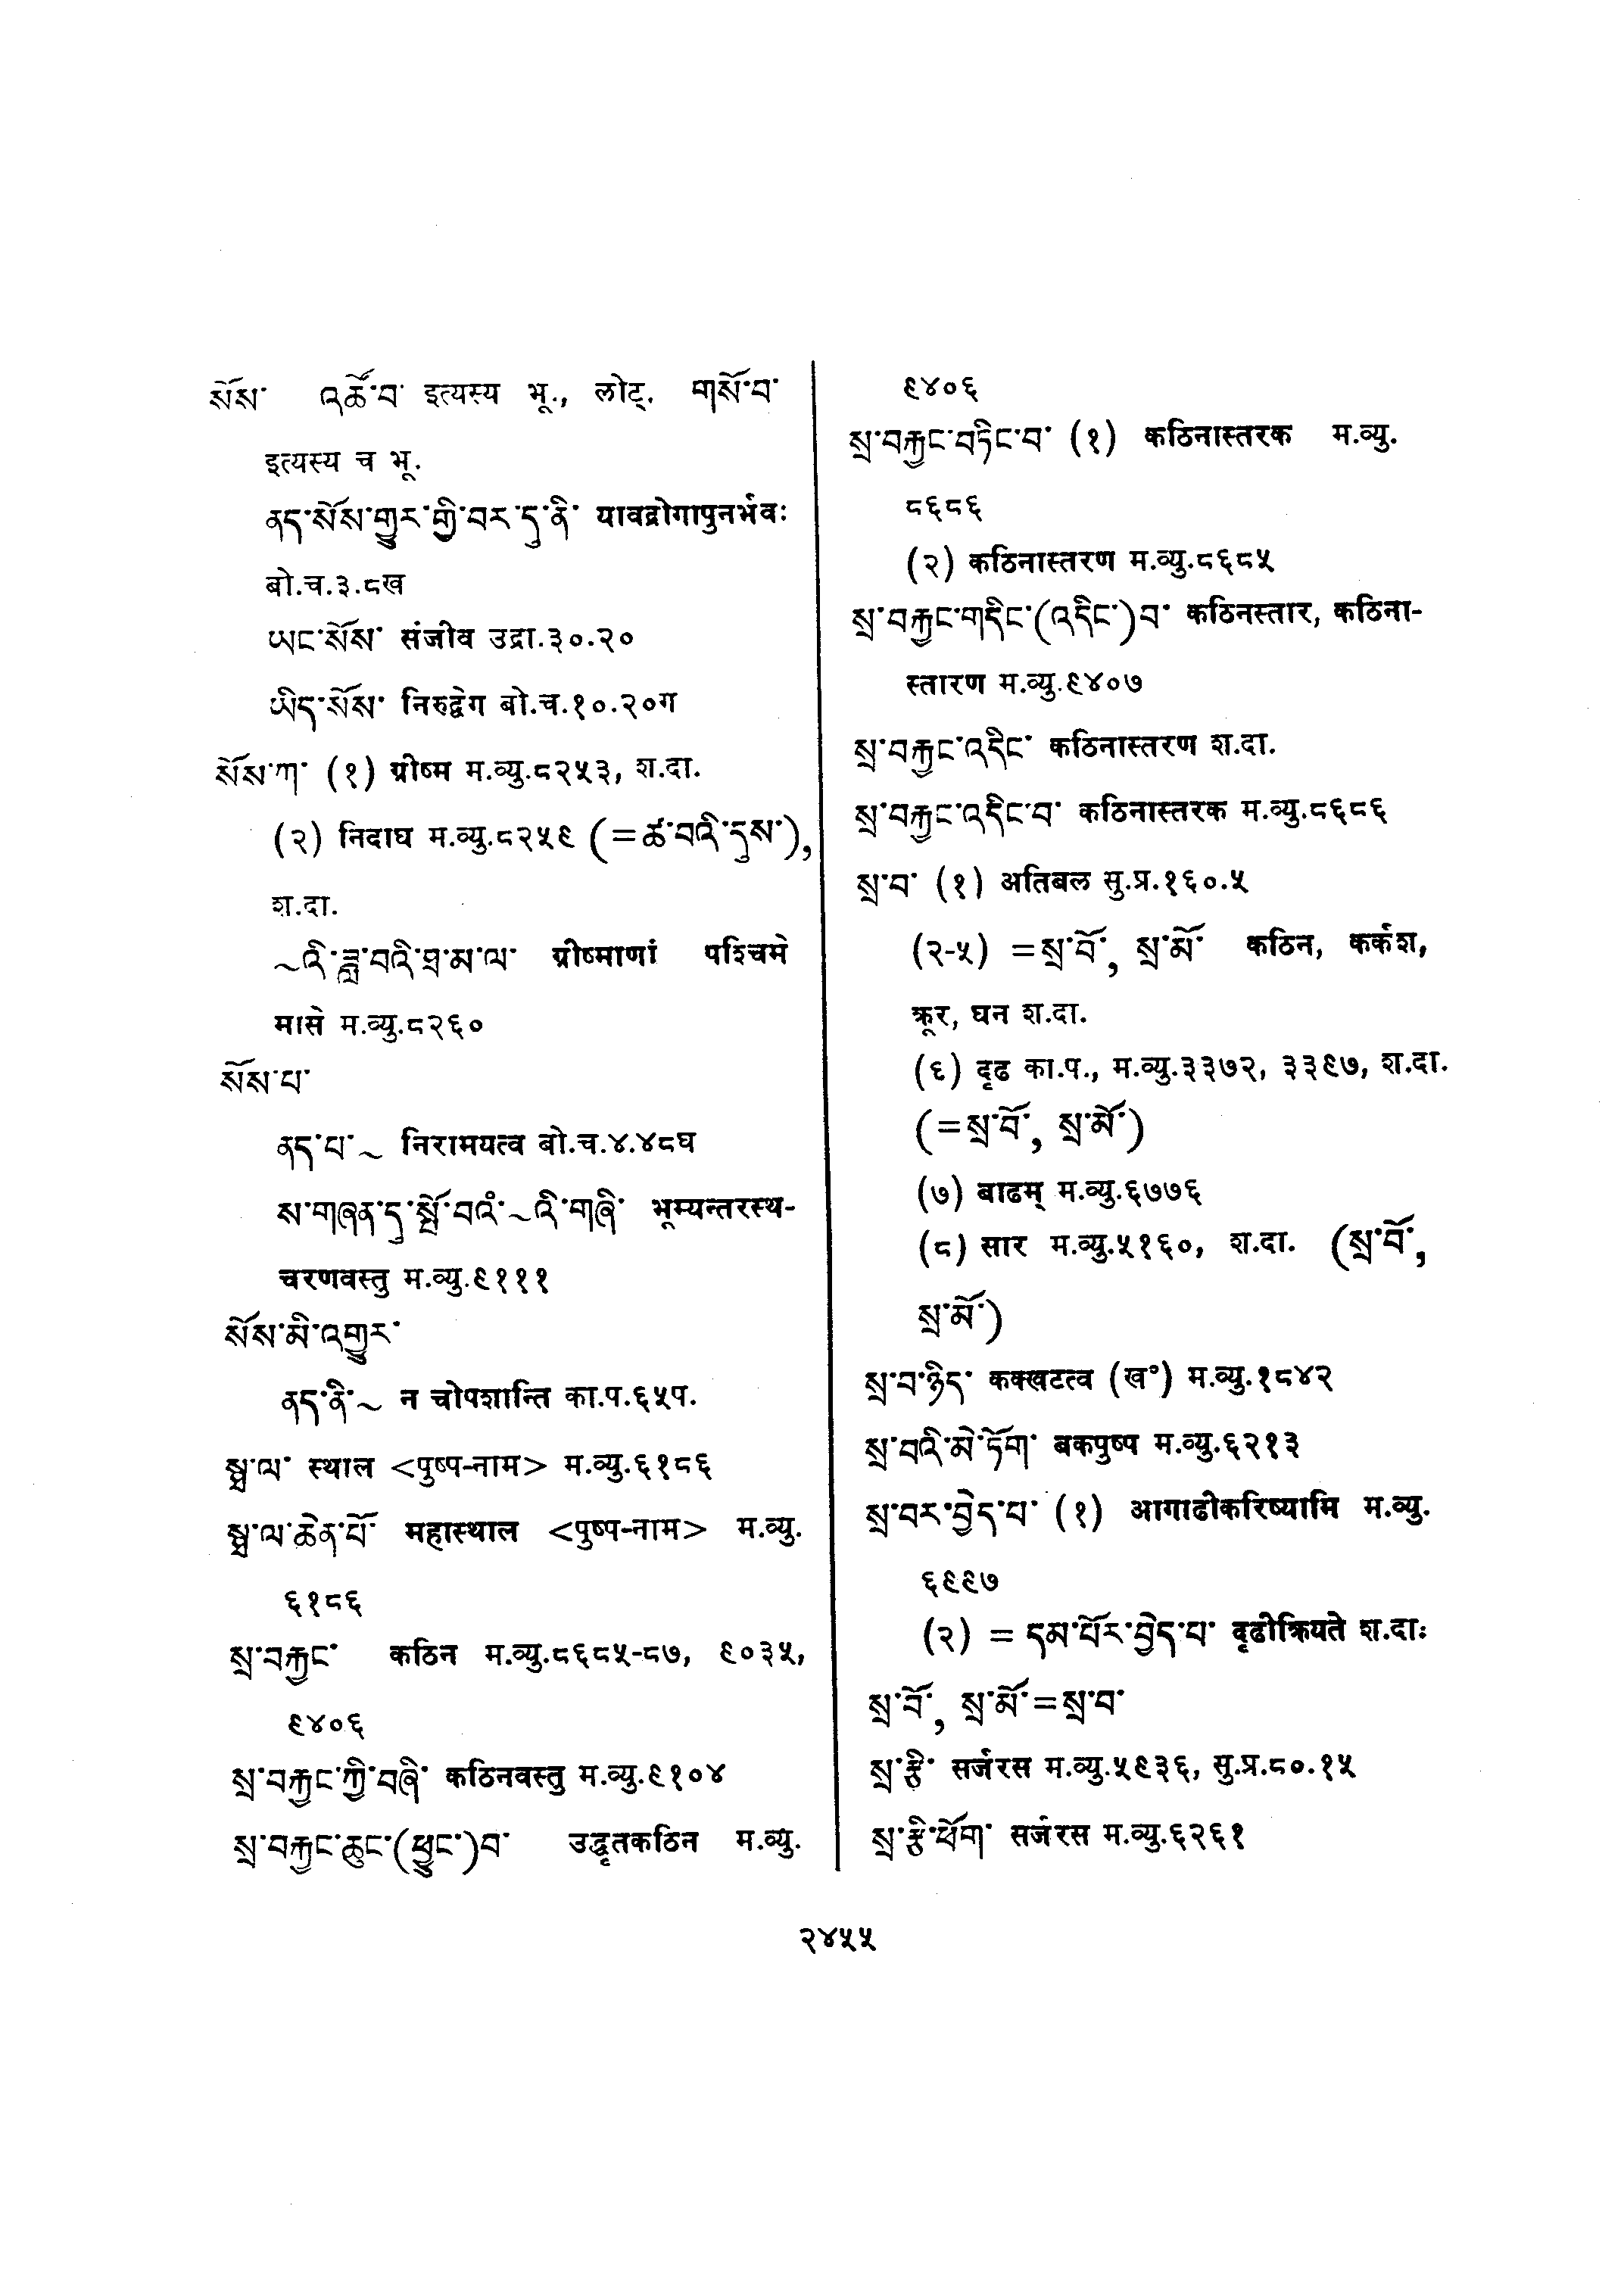 སོས་ འཚོ་བ་ इत्यस्य भू., लोट्. གསོ་བ་
इत्यस्य च भू.
ནད་སོས་གྱུར་གྱི་བར་དུ་ནི་ यावद्रोगापुनर्भवः
बो.च.३.८ख
ཡང་སོས་ संजीव उद्रा.३०.२०
ཡིད་སོས་ निरुद्वेग बो.च.१०.२०ग
སོས་ཀ་ (१) ग्रीष्म म.व्यु.८२५३, श.दा.
(२) निदाघ म.व्यु.८२५९ (=ཚ་བའི་དུས་),
श.दा.
~འི་ཟླ་བའི་ཐ་མ་ལ་ ग्रीष्माणां पश्चिमे
मासे म.व्यु.८२६०
སོས་པ་
ནད་པ་~ निरामयत्व बो.च.४.४८घ
ས་གཞན་དུ་སྤོ་བའཾ་~འི་གཞི་ भूम्यन्तरस्थ-
चरणवस्तु म.व्यु.९१११
སོས་མི་འགྱུར་
ནད་ནི་~ न चोपशान्ति का.प.६५प.
སྠ་ལ་ स्थाल <पुष्प-नाम> म.व्यु.६१८६
སྠ་ལ་ཆེན་པོ་ महास्थाल <पुष्प-नाम> म.व्यु.
६१८६
སྲ་བརྐྱང་ कठिन म.व्यु.८६८५-८७, ९०३५,
९४०६
སྲ་བརྐྱང་ཀྱི་བཞི་ कठिनवस्तु म.व्यु.९१०४
སྲ་བརྐྱང་ཆུང་(ཕྱུང་)བ་ उद्धृतकठिन म.व्यु.
९४०६
སྲ་བརྐྱང་བཏིང་བ་ (१) कठिनास्तरक म.व्यु.
८६८६
(२) कठिनास्तरण म.व्यु.८६८५
སྲ་བརྐྱང་གདིང་(འདིང་)བ་ कठिनस्तार, कठिना-
स्तारण म.व्यु.९४०७
སྲ་བརྐྱང་འདིང་ कठिनास्तरण श.दा.
སྲ་བརྐྱང་འདིང་བ་ कठिनास्तरक म.व्यु.८६८६
སྲ་བ་ (१) अतिबल सु.प्र.१६०.५
(२-५) =སྲ་བོ་, སྲ་མོ་ कठिन, कर्कश,
क्रूर, घन श.दा.
(६) दृढ का.प., म.व्यु.३३७२, ३३९७, श.दा.
(=སྲ་བོ་, སྲ་མོ་)
(७) बाढम् म.व्यु.६७७६
(८) सार म.व्यु.५१६०, श.दा. (སྲ་བོ་,
སྲ་མོ་)
སྲ་བ་ཉིད་ कक्खटत्व (ख°) म.व्यु.१८४२
སྲ་བའི་མེ་ཏོག་ बकपुष्प म.व्यु.६२१३
སྲ་བར་བྱེད་པ་ (१) आगाढीकरिष्यामि म.व्यु.
६९९७
(२) = དམ་པོར་བྱེད་པ་ दृढीक्रियते श.दाः
སྲ་བོ་, སྲ་མོ་=སྲ་བ་
སྲ་རྩི་ सर्जरस म.व्यु.५९३६, सु.प्र.८०.१५
སྲ་རྩི་ཕོག་ सर्जरस म.व्यु.६२६१
२४५५